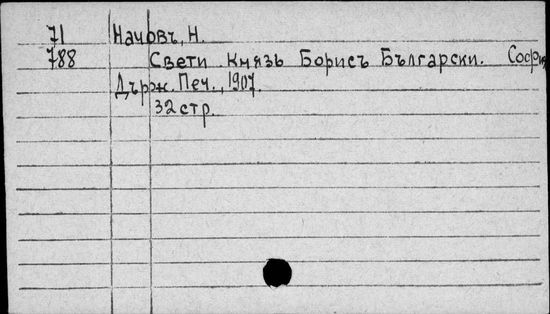 71 Начовъ, Н.
788 Свети Князь Борисъ Български. София,
Държ. Печ., 1907.
32 стр.